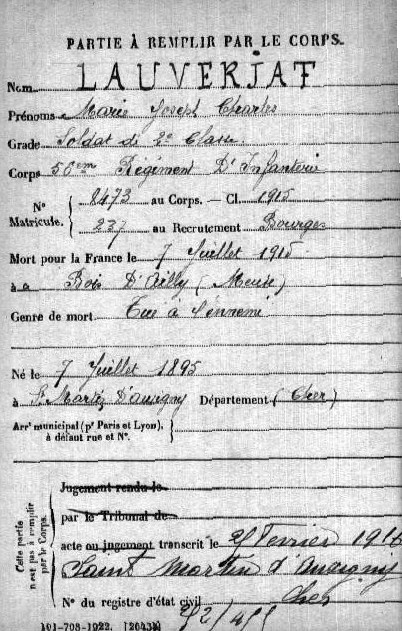 PARTIE À REMPLIR PAR LE CORPS.
Nom LAUVERJAT
Prénoms Marie Joseph Charles
Grade Soldat de 2e Classe
Corps 56em Régiment D'Infanterie
N° Matricule. { 8473 au Corps. — Cl. 1915
227 au Recrutement Bourges
Mort pour la France le 7 Juillet 1915
à a Bois D'Ailly (Meuse)
Genre de mort Tué à l'ennemi
Né le 7 Juillet 1895
à St Martin D'auxigny Département (Cher)
Arrt municipal (pr Paris et Lyon), à défaut rue et N°.
Cette partie n'est pas à remplir par le Corps.
Jugement rendu le
par le Tribunal de
acte ou jugement transcrit le Février
Saint Martin d'Auxigny
Cher
N° du registre d'état civil
101-708-1922. [26434]